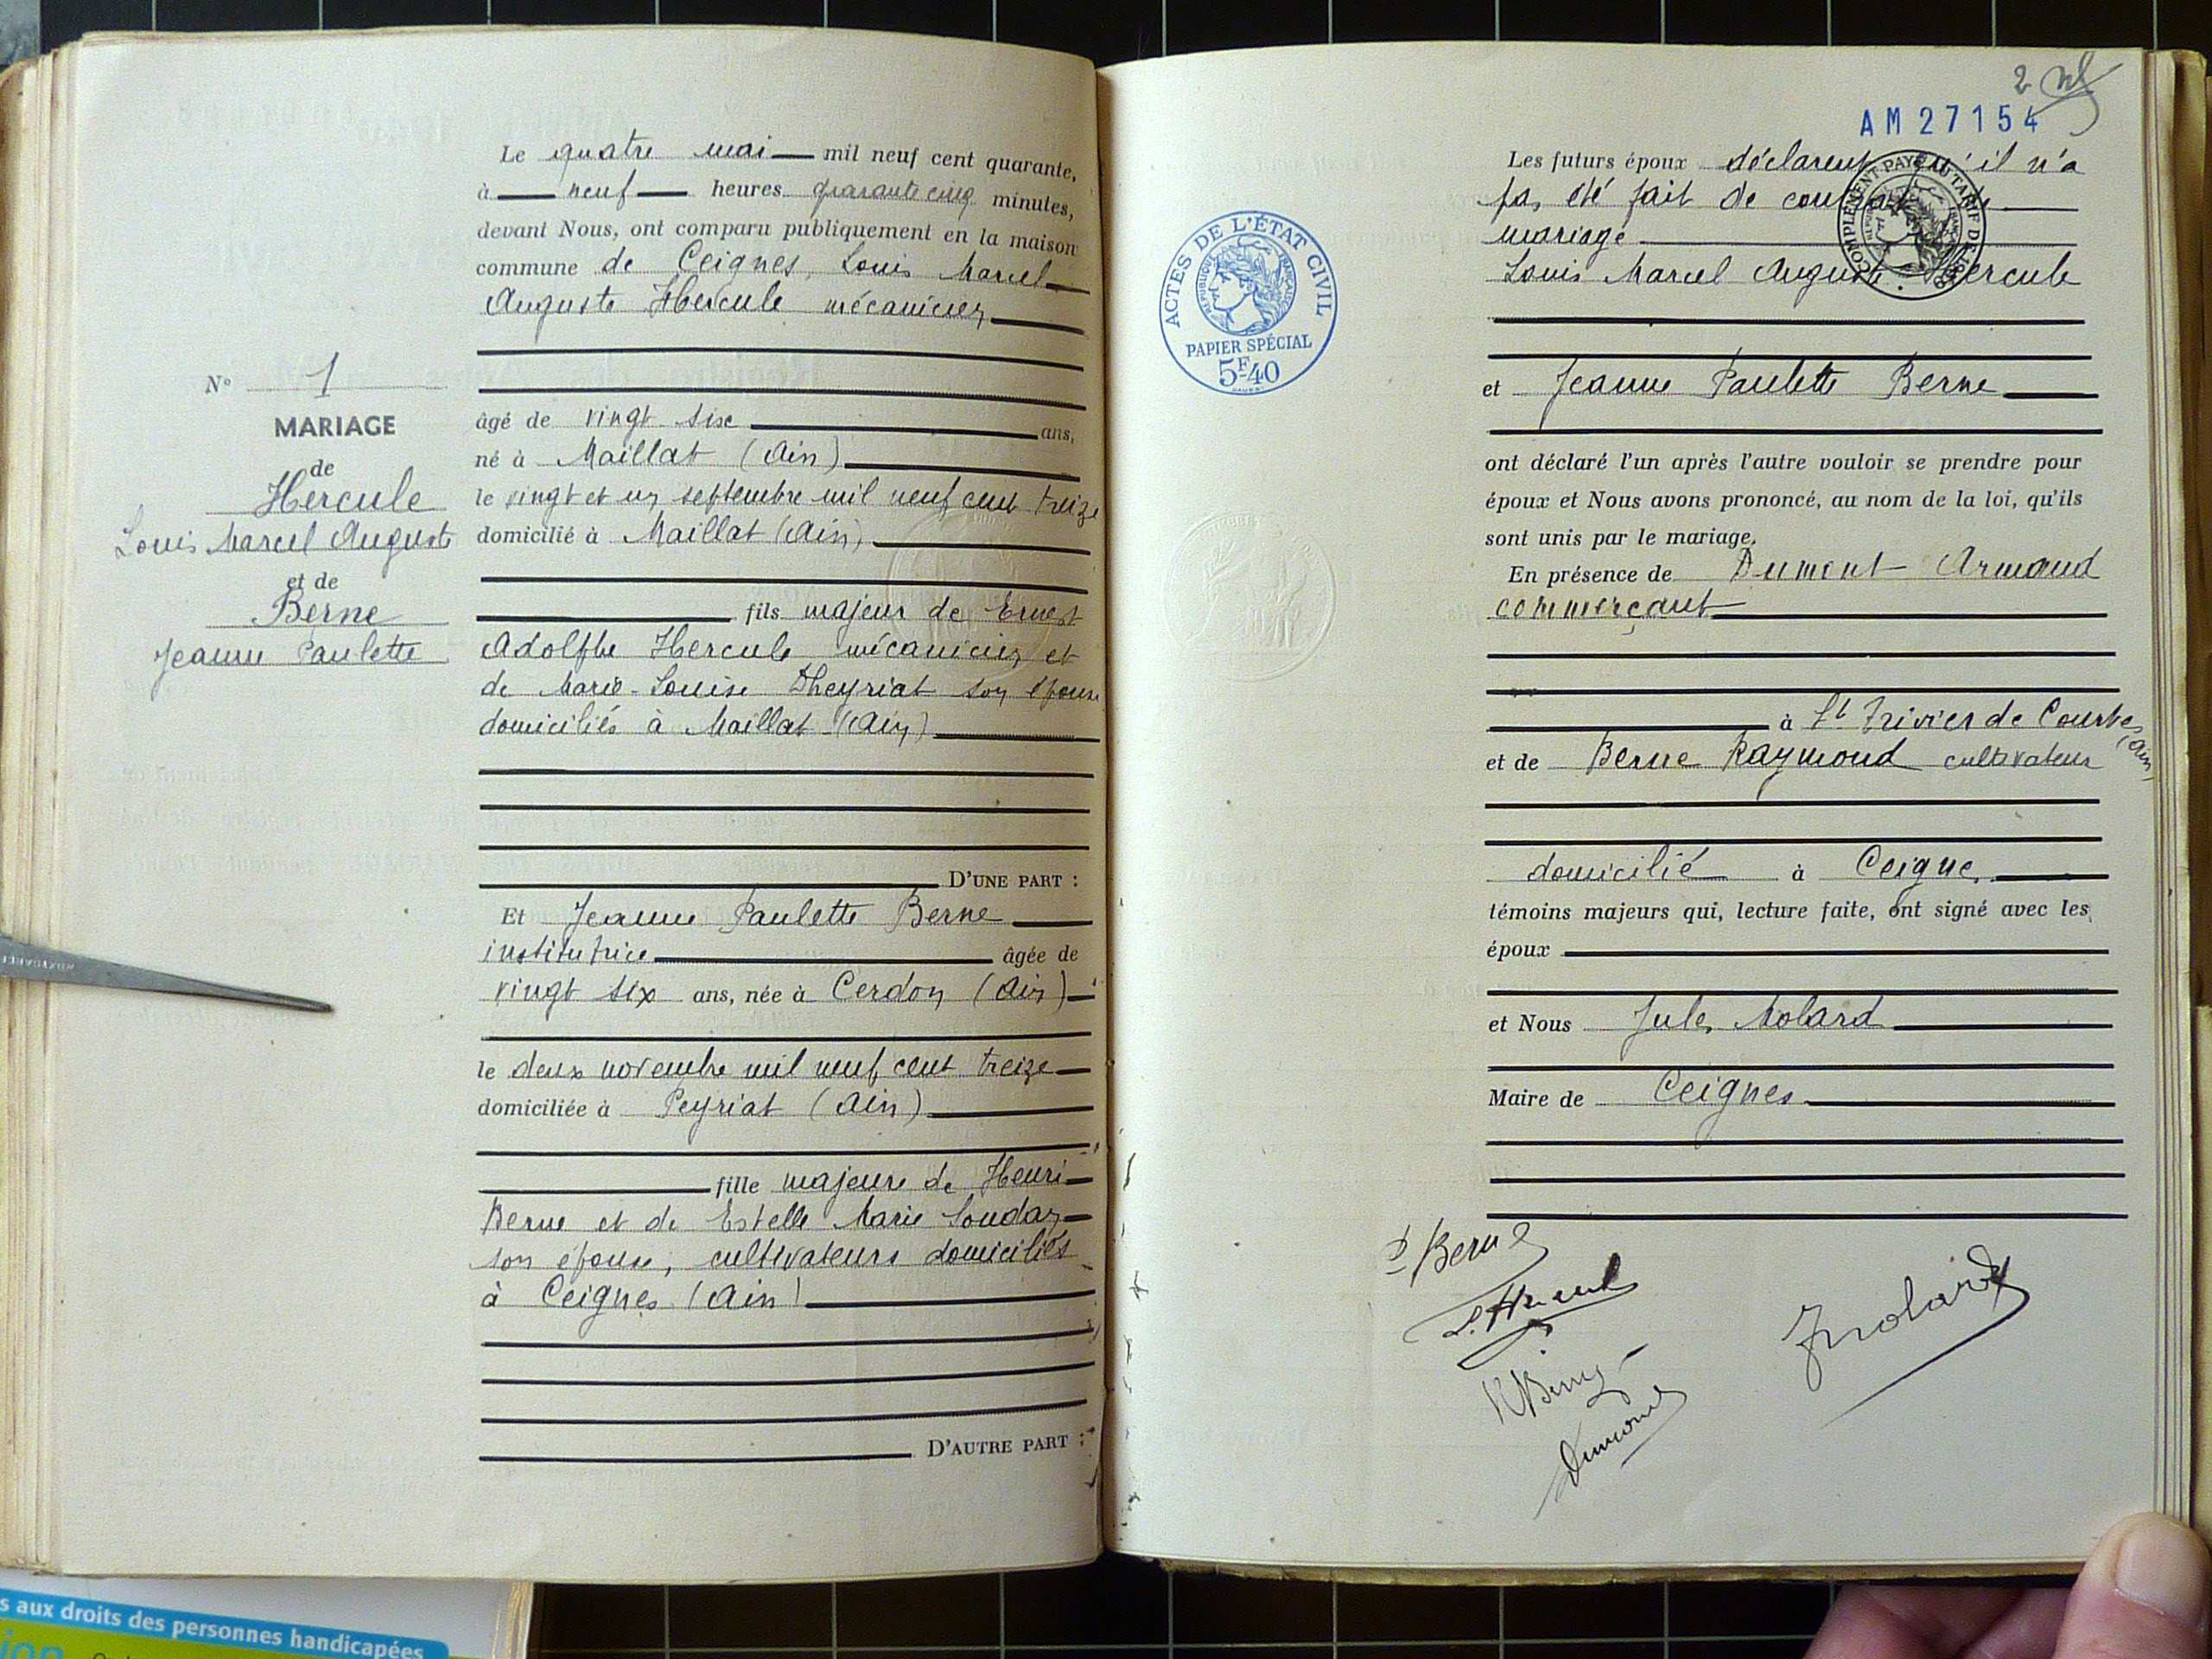 Le quatre mai mil neuf cent quarante,
à neuf heures quarante cinq minutes,
devant Nous, ont comparu publiquement en la maison
commune de Ceignes, Louis Marcel
Auguste Hercule mécanicien
N° 1
MARIAGE
de
Hercule
Louis Marcel Auguste
et de
Berne
Jeanne Paulette
âgé de vingt six ans,
né à Maillat (Ain)
le vingt et un septembre mil neuf cent treize
domicilié à Maillat (Ain)
fils majeur de Ernest
Adolphe Hercule mécanicien et
de Marie-Louise Dheyriat son épouse
domiciliés à Maillat (Ain)
D'UNE PART :
Et Jeanne Paulette Berne
institutrice âgée de
vingt six ans, née à Cerdon (Ain)
le deux novembre mil neuf cent treize
domiciliée à Peyriat (Ain)
fille majeure de Henri
Berne et de Estelle Marie Soudan
son épouse, cultivateurs domiciliés
à Ceignes (Ain)
D'AUTRE PART :
2
AM 27154
Les futurs époux déclarent qu'il n'a
pas été fait de contrat de
mariage
Louis Marcel Auguste Hercule
et Jeanne Paulette Berne
ont déclaré l'un après l'autre vouloir se prendre pour
époux et Nous avons prononcé, au nom de la loi, qu'ils
sont unis par le mariage.
En présence de Dumont Armand
commerçant
à St Trivier de Courtes (Ain)
et de Berne Raymond cultivateur
domicilié à Ceignes
témoins majeurs qui, lecture faite, ont signé avec les
époux
et Nous Jules Molard
Maire de Ceignes
COMPLÉMENT PAYÉ AU TARIF DE
ACTES DE L'ÉTAT CIVIL
RÉPUBLIQUE FRANÇAISE
PAPIER SPÉCIAL
5F40
Berne
L. Hercule
R Berne
Dumont
J Molard
s aux droits des personnes handicapées
ion